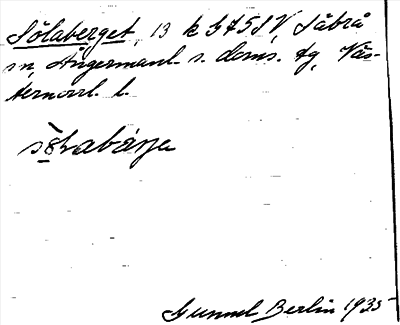 Sölaberget, 13 k G75SV, Säbrå
sn, Ångermanl. s. doms. tg, Väs-
ternorrl. l.
Gunnel Berlin 1935